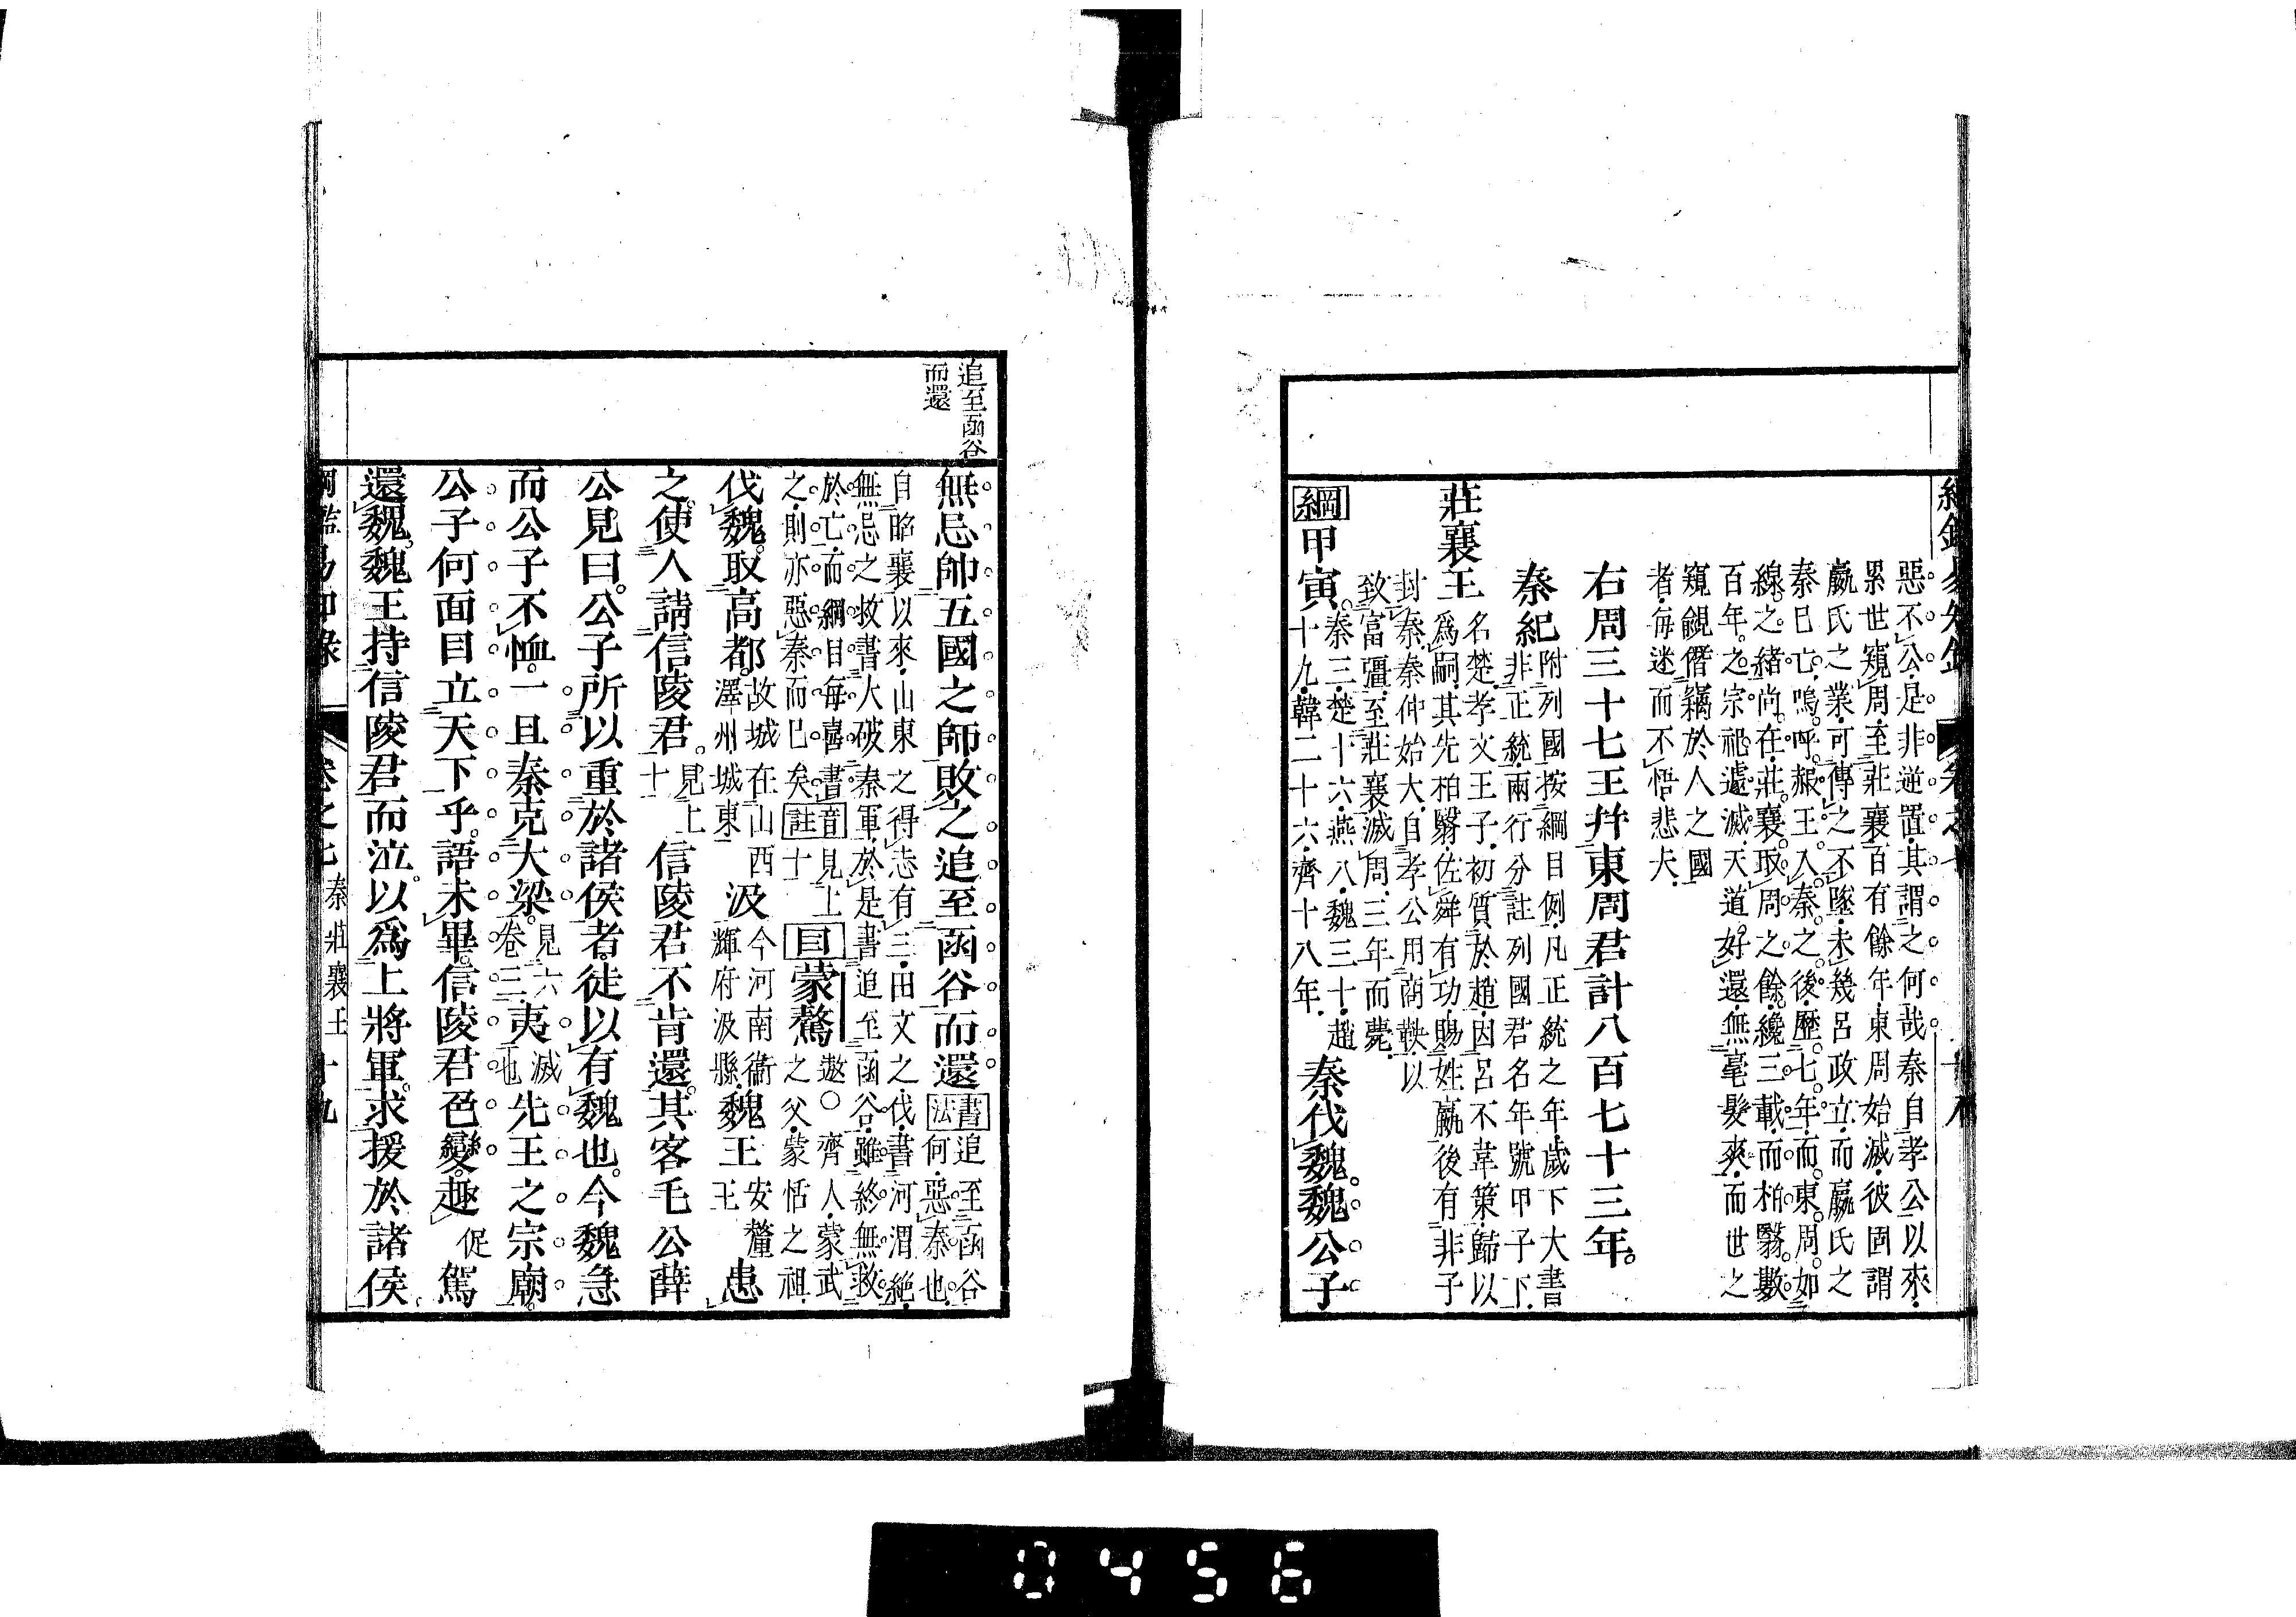 惡不公是非逆置其謂之何哉秦自孝公以來
累世窺周至莊襄百有餘年東周始滅彼固謂
嬴氏之業可傳之不墜未幾呂政立而嬴氏之
秦已亡嗚呼赧王入秦之後歷七年而東周如
線之緒尚在莊襄取周之餘纔三載而柏翳數
百年之宗祀遽滅天道好還無毫髮爽而世之
窺覦僭竊於人之國
者每迷而不悟悲夫
右周三十七王幷東周君計八百七十三年
秦紀附列國按綱目例凡正統之年歲下大書
非正統兩行分註列國君名年號甲子下
莊襄王名楚孝文王子初質於趙因呂不韋策歸以
爲嗣其先柏翳佐舜有功賜姓嬴後有非子
封秦秦仲始大自孝公用商鞅以
致富彊至莊襄滅周三年而薨
綱甲寅秦三楚十六燕八魏三十趙
十九韓二十六齊十八年秦伐魏魏公子
追至函谷
而還
無忌帥五國之師敗之追至函谷而還書法追至函谷
何惡秦也
自昭襄以來山東之得志有三田文之伐書河渭絶
無忌之救書大破秦軍於是書追至函谷雖終無救
於亡而綱目每喜書
之則亦惡秦而已矣音註見上十目蒙驁遨○齊人蒙武
之父蒙恬之祖
伐魏取高都故城在山西
澤州城東汲今河南衞
輝府汲縣魏王安釐
王患
之使人請信陵君見上
十信陵君不肯還其客毛公薛
公見曰公子所以重於諸侯者徒以有魏也今魏急
而公子不恤一旦秦克大梁見六
卷三夷滅
也先王之宗廟
公子何面目立天下乎語未畢信陵君色變趣促駕
還魏魏王持信陵君而泣以爲上將軍求援於諸侯
綱鑑易知錄 卷之七 秦莊襄王 十九